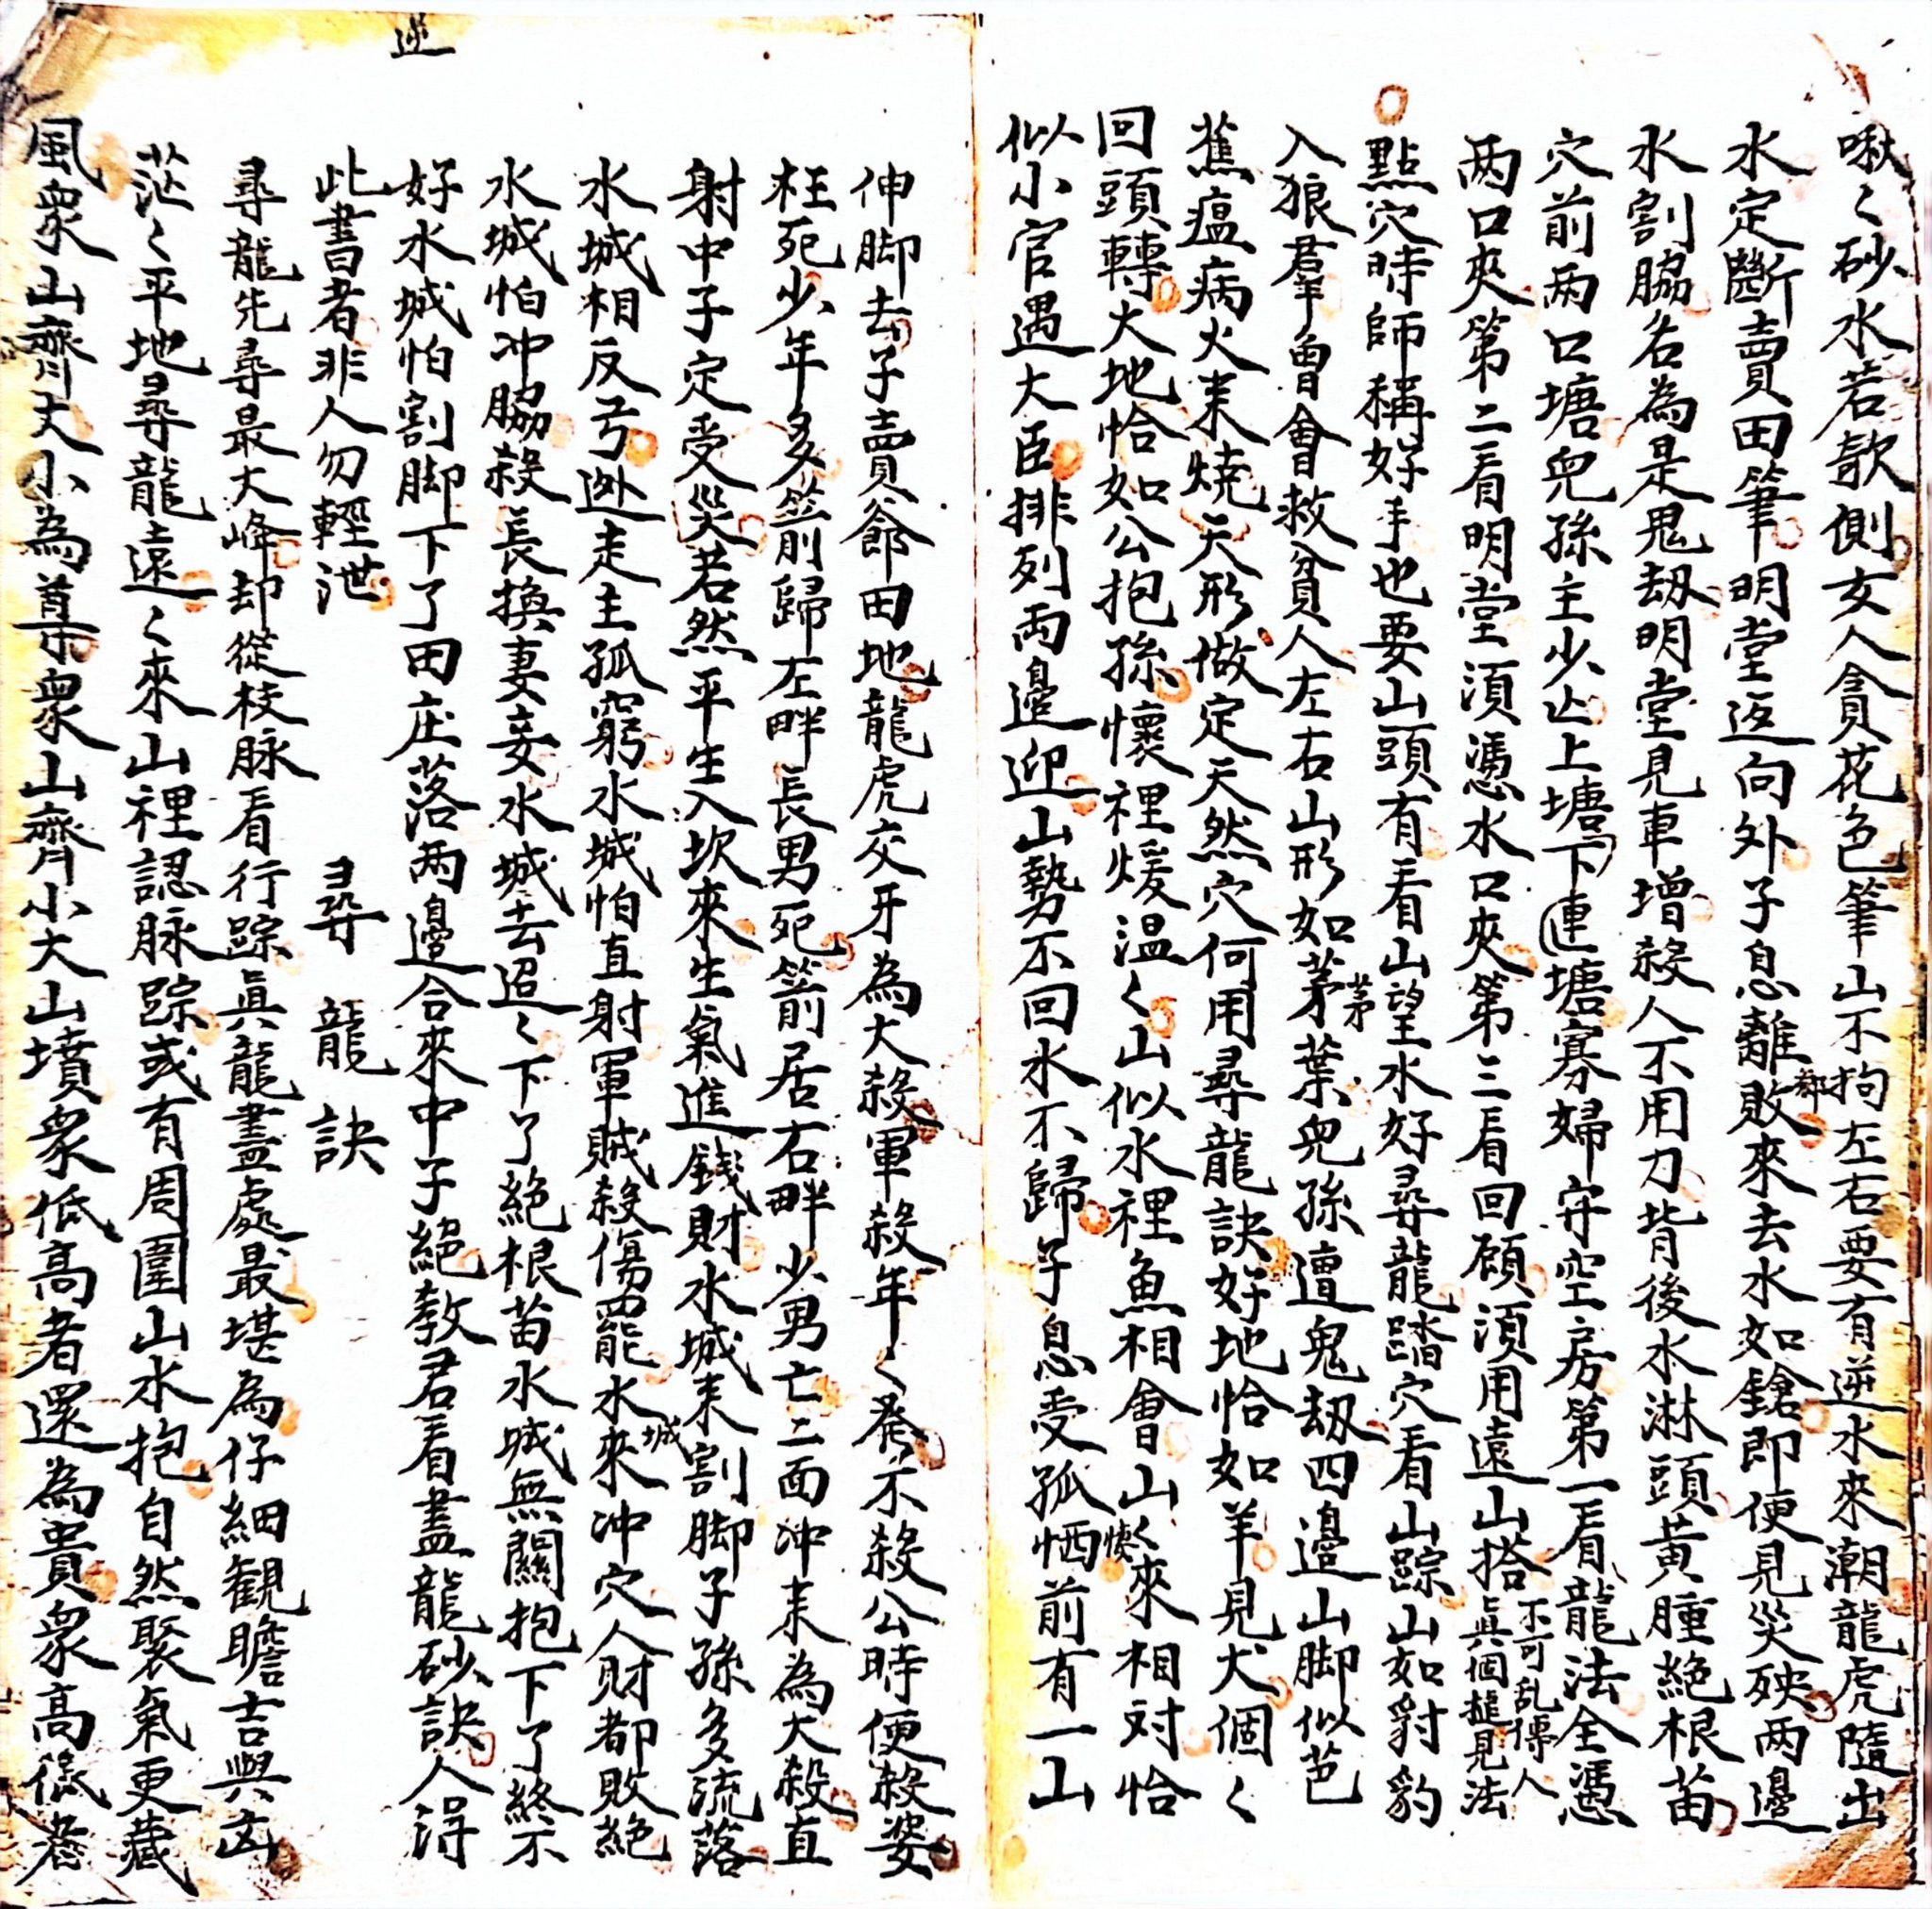 啾々砂水若欹側女人貪花色筆山不拘左右要有逆水來潮龍虎隨出
水定斷賣田筆明堂返向外子息離都敗來去水如鎗即便見災殃两邊
水割脇名為是鬼刼明堂見車增殺人不用刀背後水淋頭黄腫絶根苗
穴前两口塘兒孫主少亡上塘下連塘寡婦守空房第一看龍法全憑
两口夾第二看明堂須憑水口夾第三看回顧須用遠山搭不可乱傳人真個搥見法
點穴時師稱好手也要山頭有看山望水好尋龍踏穴看山踪山如豺豹
入狼羣曾會救貧人左右山形如茅茅葉兒孫遭鬼刼四邊山脚似芭
蕉瘟病火耒燒天形做定天然穴何用尋龍訣好地恰如羊見犬個々
回頭轉大地恰如公抱孫懷裡煖温々山似水裡魚相會山々來相対恰
似小官遇大臣排列両邊迎山勢不回水不歸子息受孤恓悽前有一山
伸脚去子賣爺田地龍虎交牙為大殺軍殺年々発不殺公時便殺婆
枉死少年多箭歸左畔長男死箭居右畔少男亡二面冲耒為大殺直
射中子定受災若然平生入坎來生氣進錢財水城耒割脚子孫多流落
水城相反弓迯走主孤窮水城怕直射軍賊殺傷罷水城來冲穴人財都敗絶
水城怕冲脇殺長換妻妾水城去迢々下了絶根苗水城無關抱下了終不
好水城怕割脚下了田庄落两邊合來中子絕教君看盡龍砂訣人淂
此書者非人勿輕泄
尋龍訣
尋龍先尋最大峰却從枝脉看行踪真龍盡處最堪為仔細観瞻吉與凶
茫々平地尋龍遠々來山裡認脉踪或有周圍山水抱自然聚氣更藏
風衆山齊大小為尊衆山齊小大山墳衆低高者還為貴衆高低者
逆